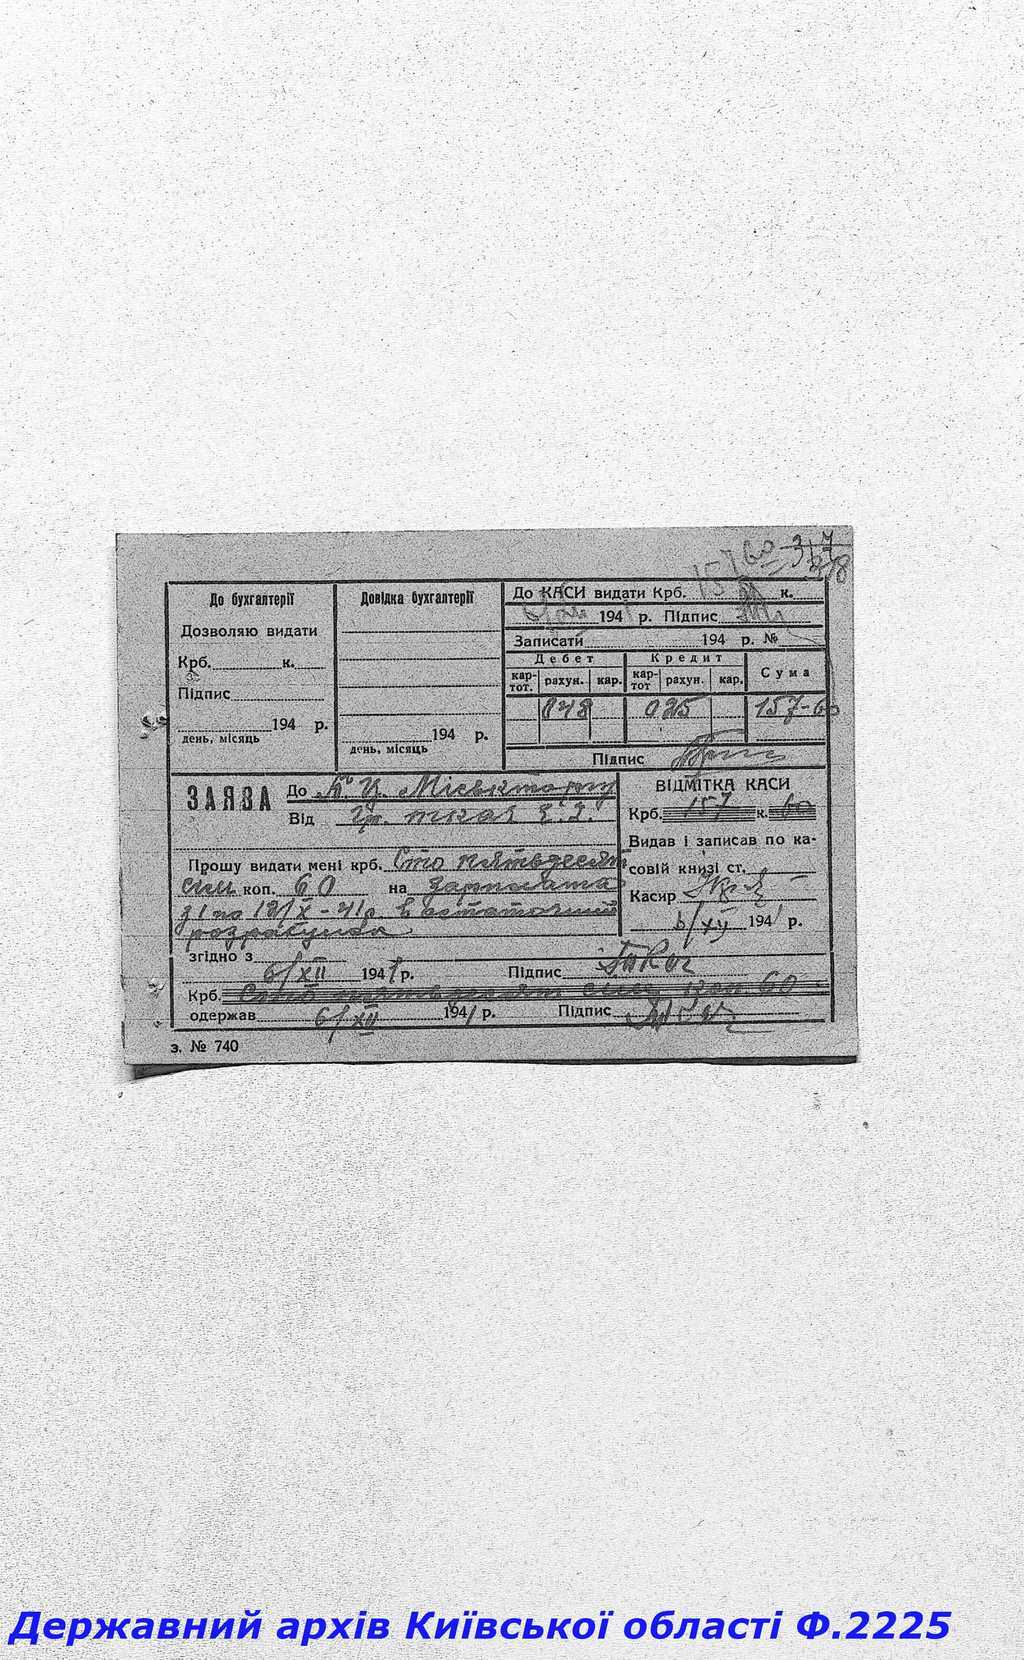 157 60
317
До бухгалтерії
Дозволяю видати
Крб. к.
Підпис
194 р.
день, місяць
Довідка бухгалтерії
194 р.
день, місяць
До КАСИ видати Крб. к.
194 р. Підпис
Записати 194 р. №
Дебет Кредит Сума
кар-тот. рахун. кар. кар-тот рахун. кар.
048 035 157-60
Підпис
ЗАЯВА
До Міськторгу
Від Гр.
Прошу видати мені крб. Сто пятьдесят
сім коп. 60 на зарплата
з 1 по 12/X-41 р. в остаточний
розрахунок
згідно з
6/XII 1941 р. Підпис
Крб. Сто пятьдесят сім коп. 60
одержав 6/XII 1941 р. Підпис
ВІДМІТКА КАСИ
Крб. 157 к. 60
Видав і записав по ка-
совій книзі ст.
Касир
6/XII 1941 р.
з. № 740
Державний архів Київської області Ф.2225